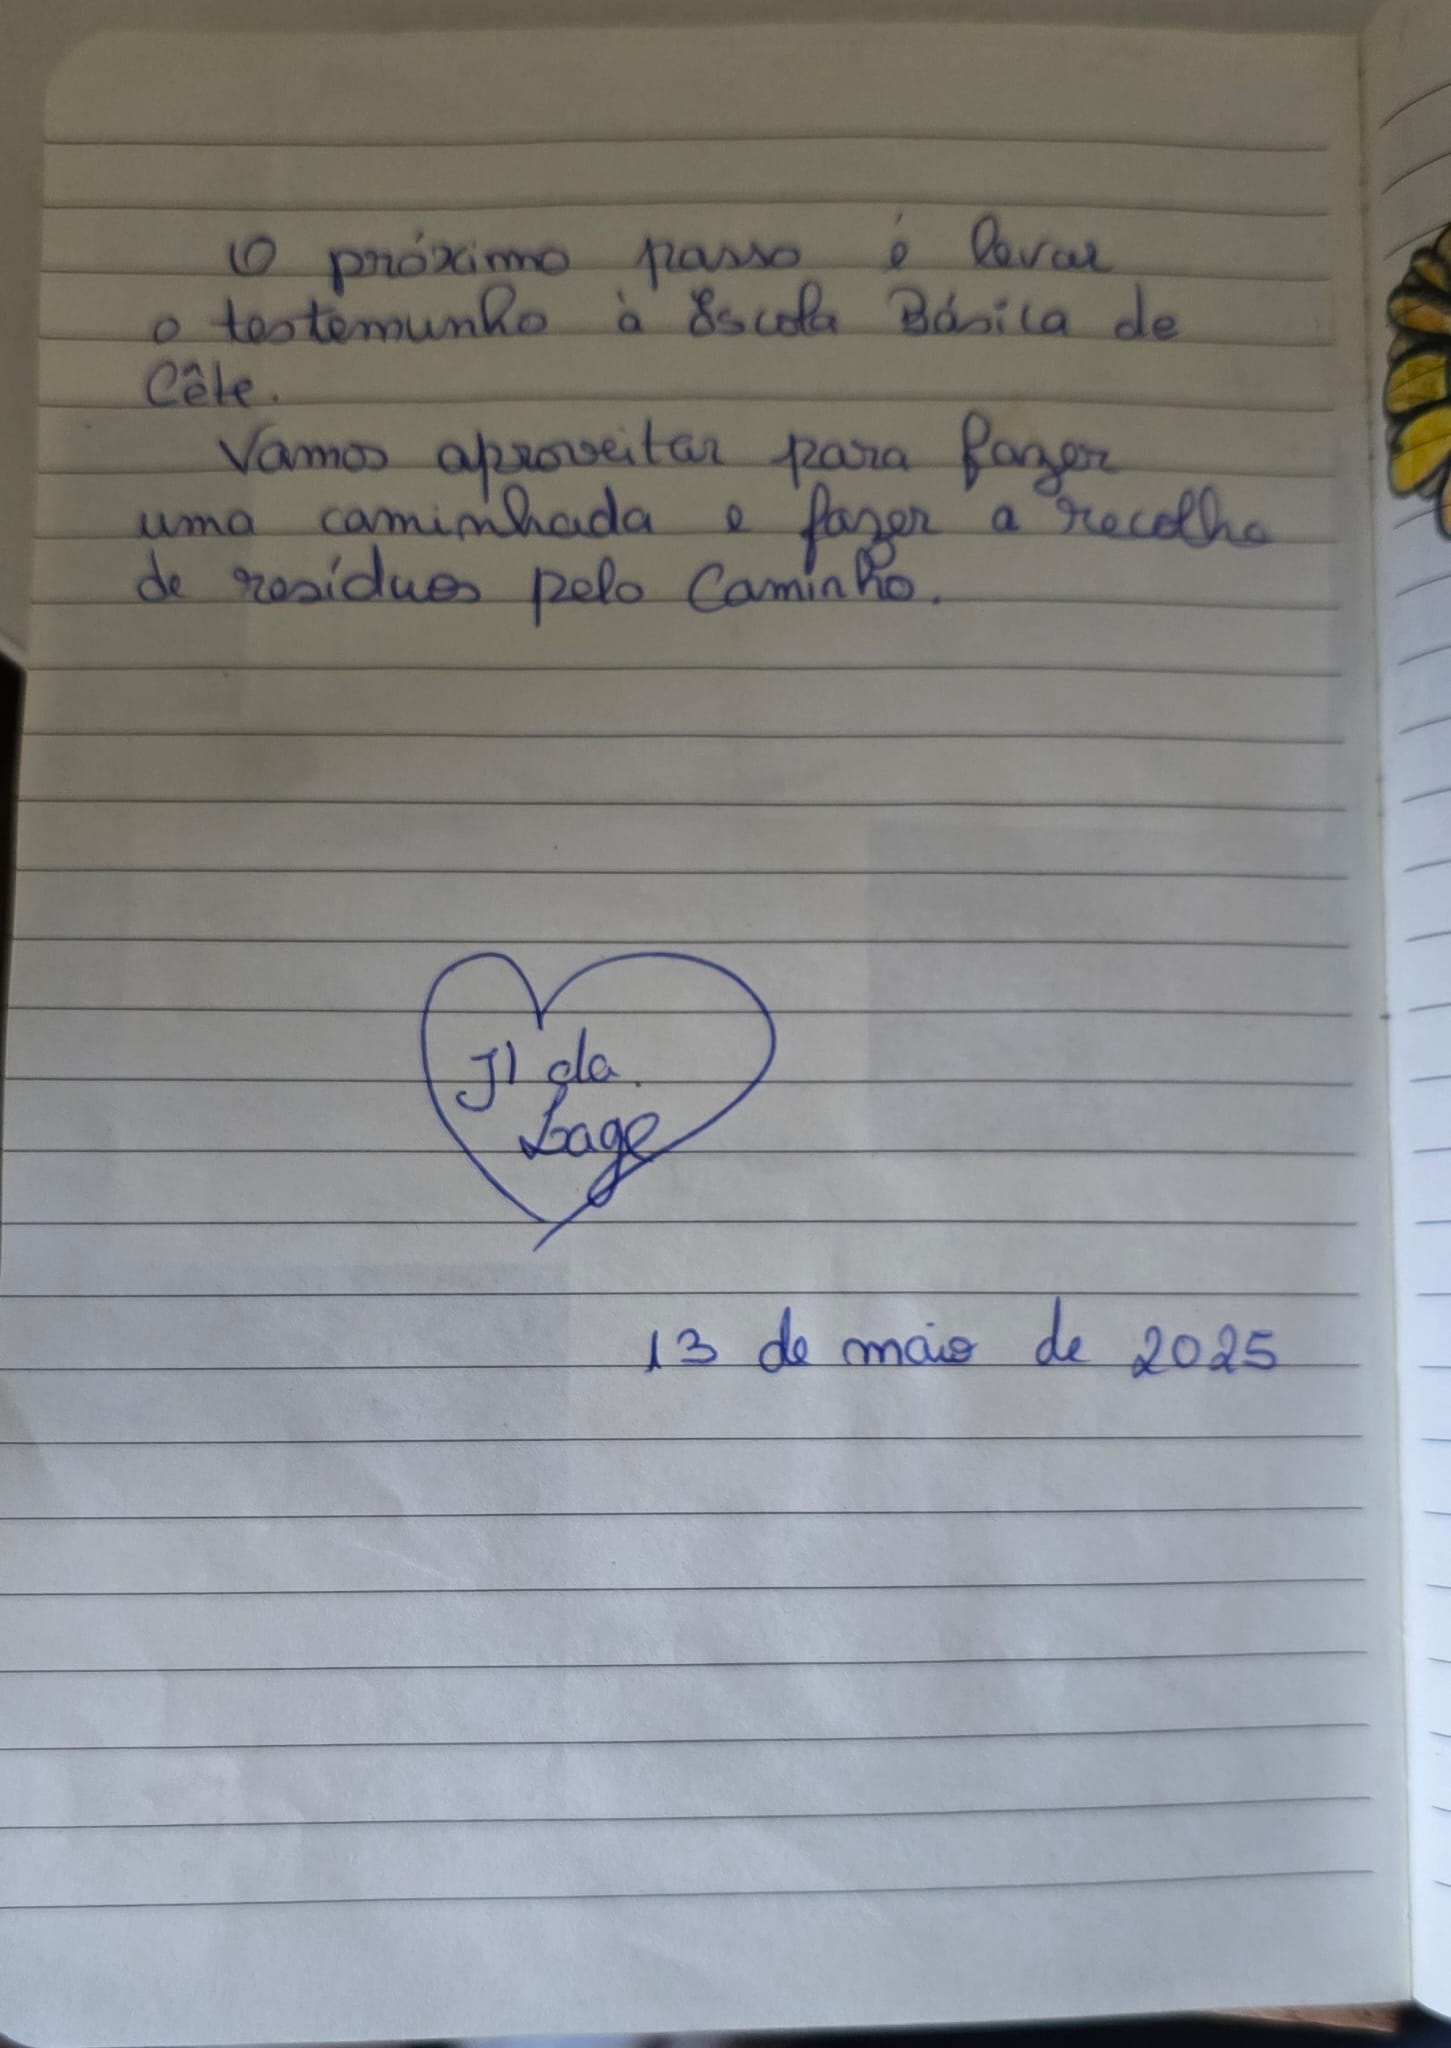 O próximo passo é levar
o testemunho à Escola Básica de
Cête.
Vamos aproveitar para fazer
uma caminhada e fazer a recolha
de resíduos pelo Caminho.
JI da
Lage
13 de maio de 2025